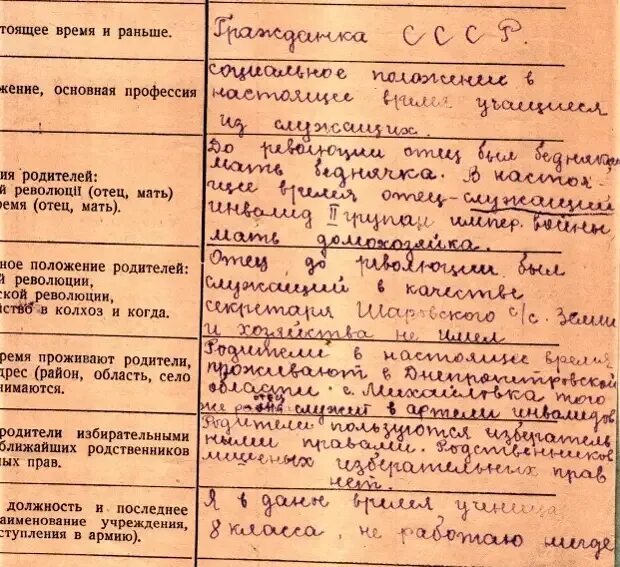 тоящее время и раньше.
Гражданка СССР.
жение, основная профессия
социальное положение в
настоящее время учащиеся
из служащих.
ия родителей:
й революції (отец, мать)
ремя (отец, мать).
До революции отец был бедняк,
мать беднячка. В настоя-
щее время отец-служащий
инвалид II групан импер. войны
мать домохозяйка.
ное положение родителей:
й революции,
ской революции,
йство в колхоз и когда.
Отец до революции был
служащий в качестве
секретаря Шаровского с/с. Земли
и хозяйства не имел
ремя проживают родители,
дрес (район, область, село
нимаются.
Родители в настоящее время
проживают в Днепропетровской
области с. Михайловка того
же отец служит в артели инвалидов
родители избирательными
ближайших родственников
ных прав.
Родители пользуются избератель
ными правами. Родственников
лишеных избирательных прав
нет.
должность и последнее
аименование учреждения,
ступления в армию).
Я в даное время ученица
8 класса, не работаю нигде